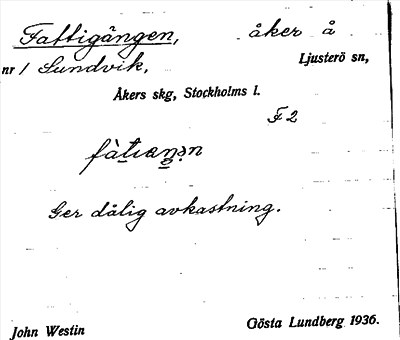 Fattigängen, åker å
nr 1 Sundvik, Ljusterö sn,
Åkers skg, Stockholms l.
F2
Ger dålig avkastning.
John Westin Gösta Lundberg 1936.